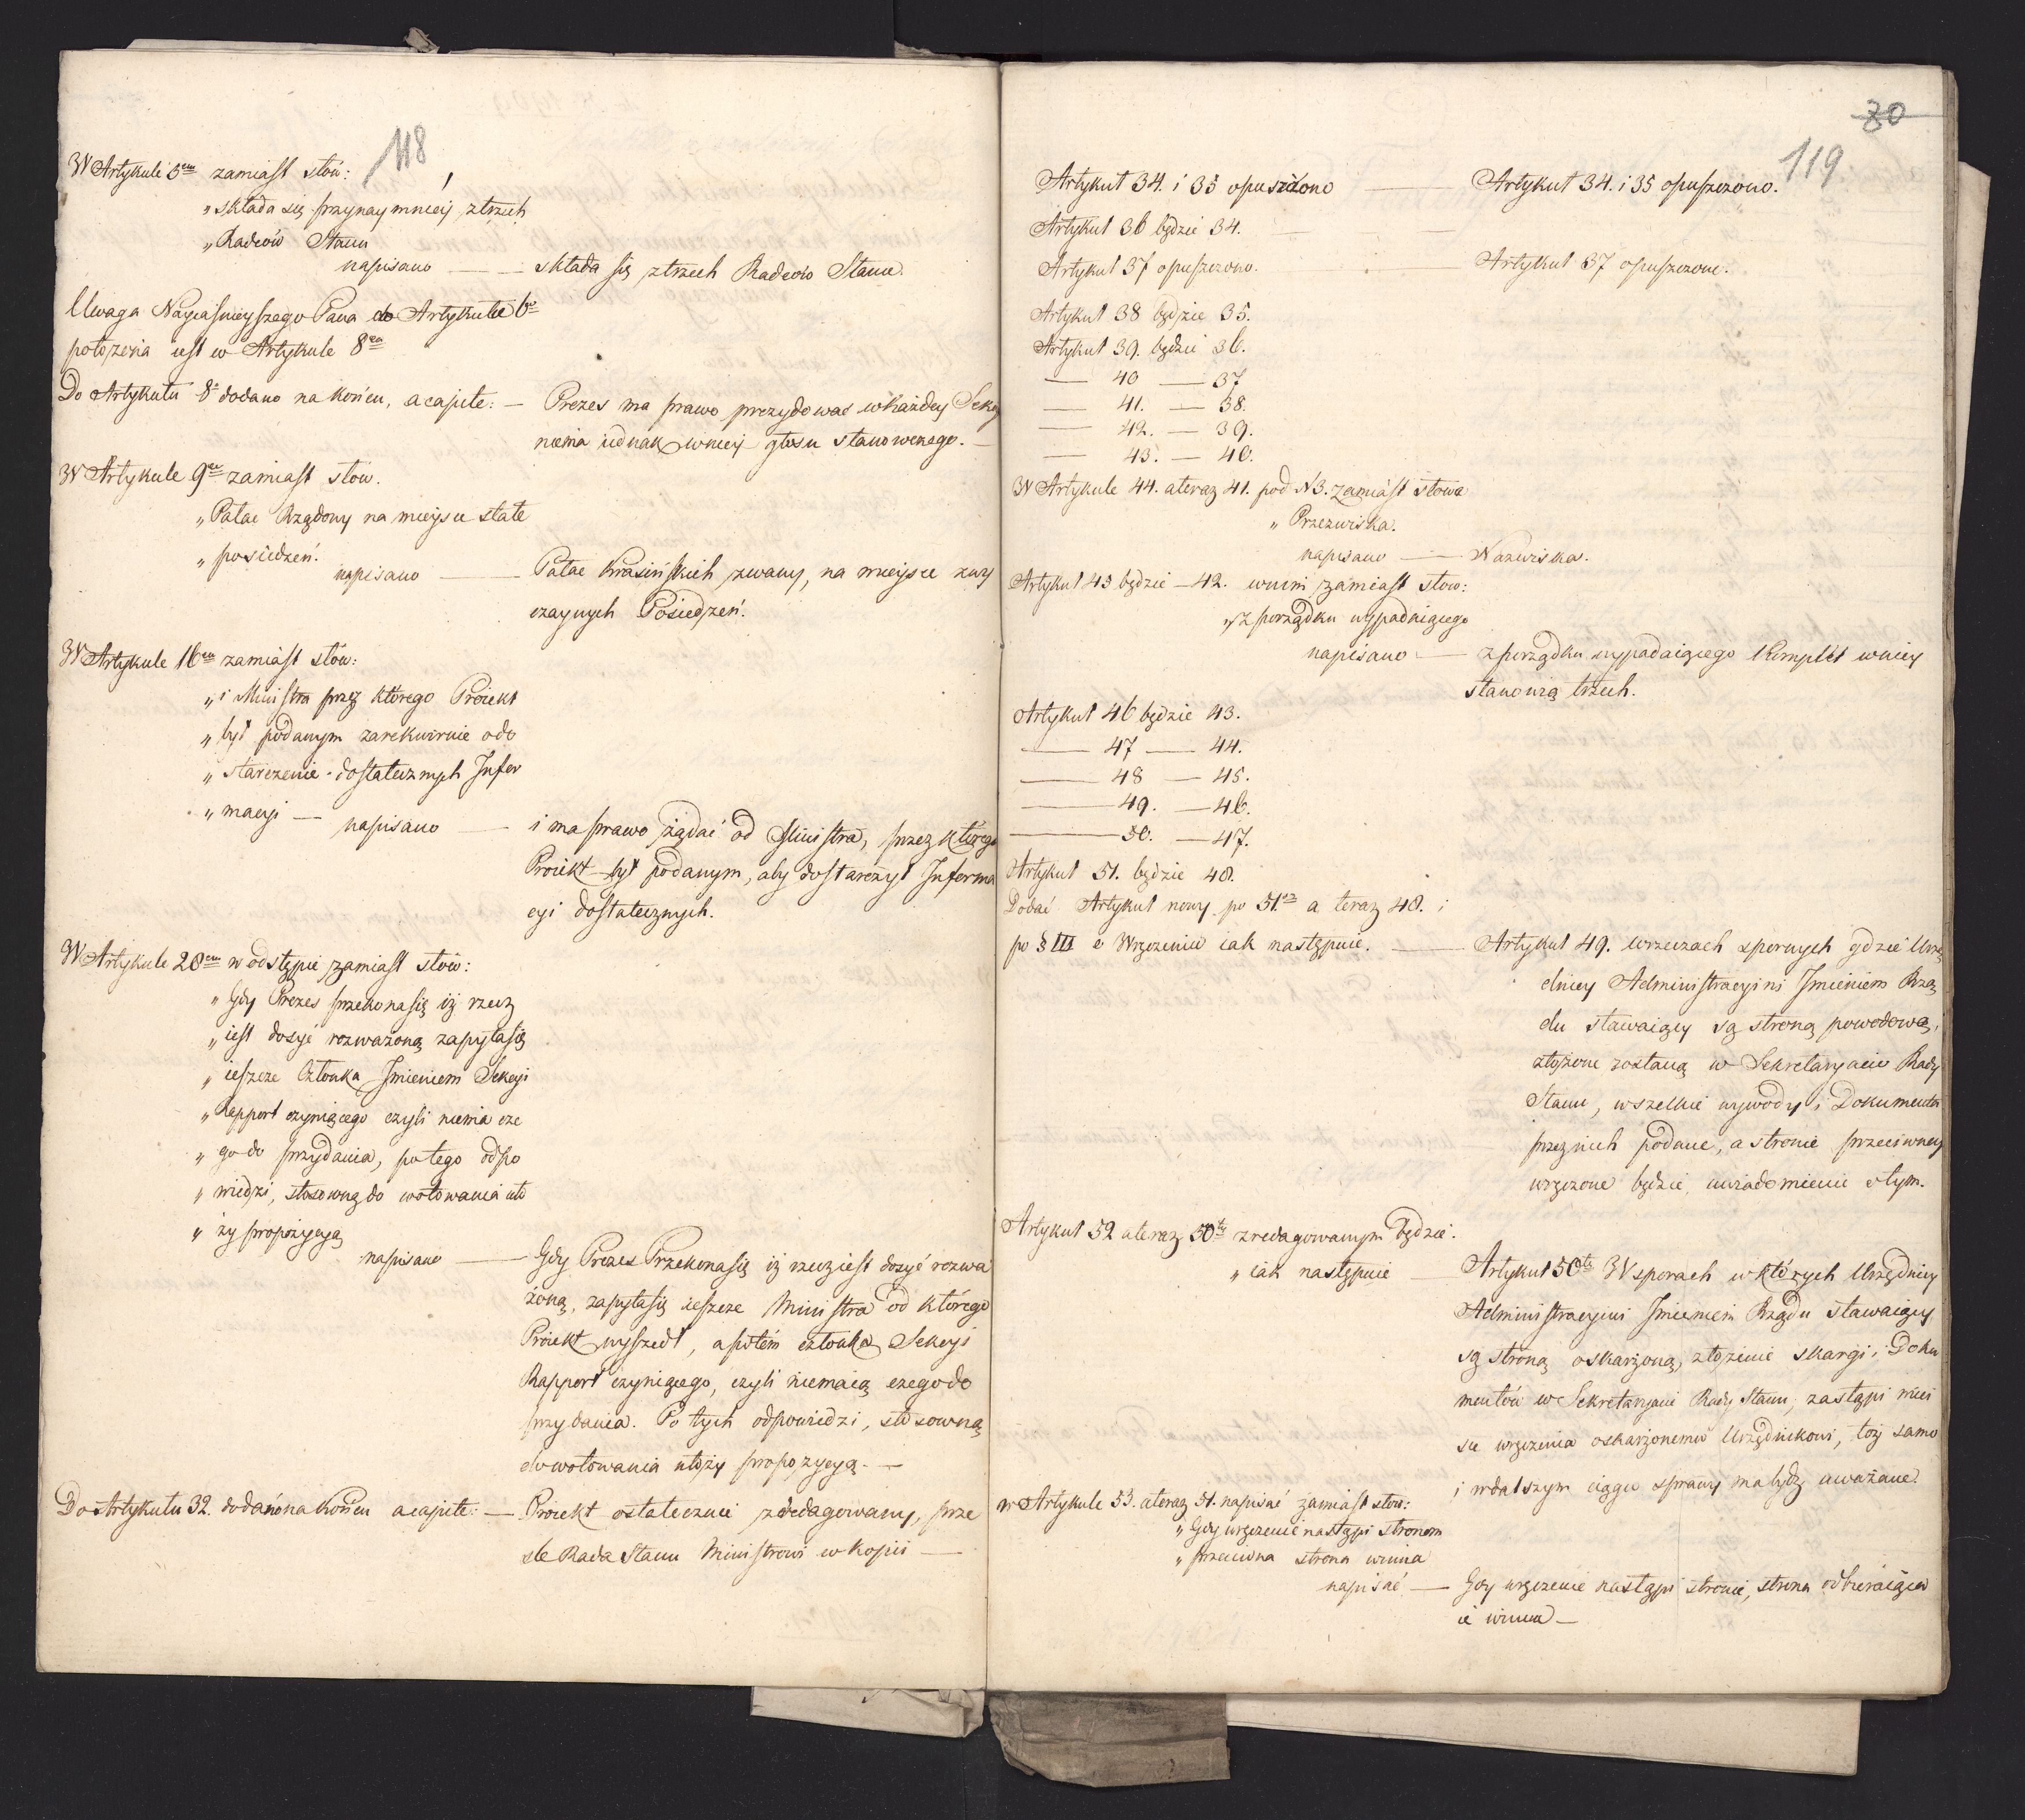 118
W Artykule 5em zamiast słów:
„składa się przynaymniey z trzech
„Radców Stanu
napisano — — składa się z trzech Radców Stanu.
Uwaga Nayiaśnieyszego Pana do Artykułu 6o
położona iest w Artykule 8em
Do Artykułu 8o dodano na końcu, a capite: — Prezes ma prawo prezydować w każdey Sekcyi
niema iednak w niey głosu stanowczego. —
W Artykule 9em zamiast słów.
„Pałac Rządowy na mieysce stałe
„posiedzeń.
napisano — Pałac Krasińskich zwany, na mieysce zwy
czaynych Posiedzeń.
W Artykule 16em zamiast słów:
„i Ministra przez którego Proiekt
„był podanym zarekwiruie o do
„starczenie dostatecznych Infor
„macyi — napisano — i ma prawo żądać od Ministra, przez którego
Proiekt był podanym, aby dostarczył Informa
cyi dostatecznych.
W Artykule 20em w odstępie zamiast słów:
„Gdy Prezes przekona się iż rzecz
„iest dosyć rozważoną zapyta się
„ieszcze Członka Imieniem Sekcyi
„Rapport czyniącego czyli niema cze
„go do przydania, po tego odpo
„wiedzi, stosowną do wotowania uło
„ży propozycyą
napisano — Gdy Prezes Przekona się iż rzecz iest dosyć rozwa
żoną, zapyta się ieszcze Ministra od którego
Proiekt wyszedł, a potém członka Sekcyi
Rapport czyniącego, czyli niemaią czego do
przydania. Po tych odpowiedzi, stosowną
do wotowania ułoży propozycyą. —
Do Artykułu 32. dodano na końcu a capite: — Proiekt ostatecznie zredagowany, prze
śle Rada Stanu Ministrowi w kopii —
80
119
Artykuł 34. i 35 opuszczono — Artykuł 34. i 35 opuszczono.
Artykuł 36 będzie 34. — —
Artykuł 37 opuszczono. — Artykuł 37 opuszczone.
Artykuł 38 będzie 35.
Artykuł 39. będzie 36.
— 40 — 37
— 41. — 38.
— 42. — 39.
— 43. — 40.
W Artykule 44. a teraz 41. pod N 3. zamiast słowa
„Przezwiska.
napisano — Nazwiska.
Artykuł 45 będzie — 42. w nim zamiast słow:
„z porządku wypadaiącego
napisano — z porządku wypadaiącego Komplet w niey
stanowią trzech.
Artykuł 46 będzie 43.
— 47 — 44.
— 48 — 45.
— 49. — 46.
— 50. — 47.
Artykuł 51. będzie 48.
Dodać Artykuł nowy po 51. a teraz 48. i
po § III o Wręczeniu iak następuie. — Artykuł 49. w rzeczach spornych gdzie Urzę
dnicy Administracyini Imieniem Rzą
du stawaiący są stroną powodową,
złożone zostaną w Sekretaryacie Rady
Stanu, wszelkie wywody i Dokumenta
przez nich podane, a stronie przeciwney
wręczone będzie uwiadomienie o tym.
Artykuł 52 a teraz 50ty zredagowanym będzie:
„iak następuie — Artykuł 50ty W sporach w których Urzędnicy
Administracyini Imieniem Rządu stawaiący
są stroną oskarżoną, złożenie skargi i Doku
mentów w Sekretaryacie Rady Stanu, zastąpi miey
sce wręczenia oskarżonemu Urzędnikowi, toż samo
i w dalszym ciągu sprawy ma bydź uważane.
w Artykule 53. a teraz 51. napisać zamiast słow:
„Gdy wręczenie nastąpi stronom
„przeciwna strona winna
napisać — Gdy wręczenie nastąpi stronie, strona odbieraiąca
ie winna —